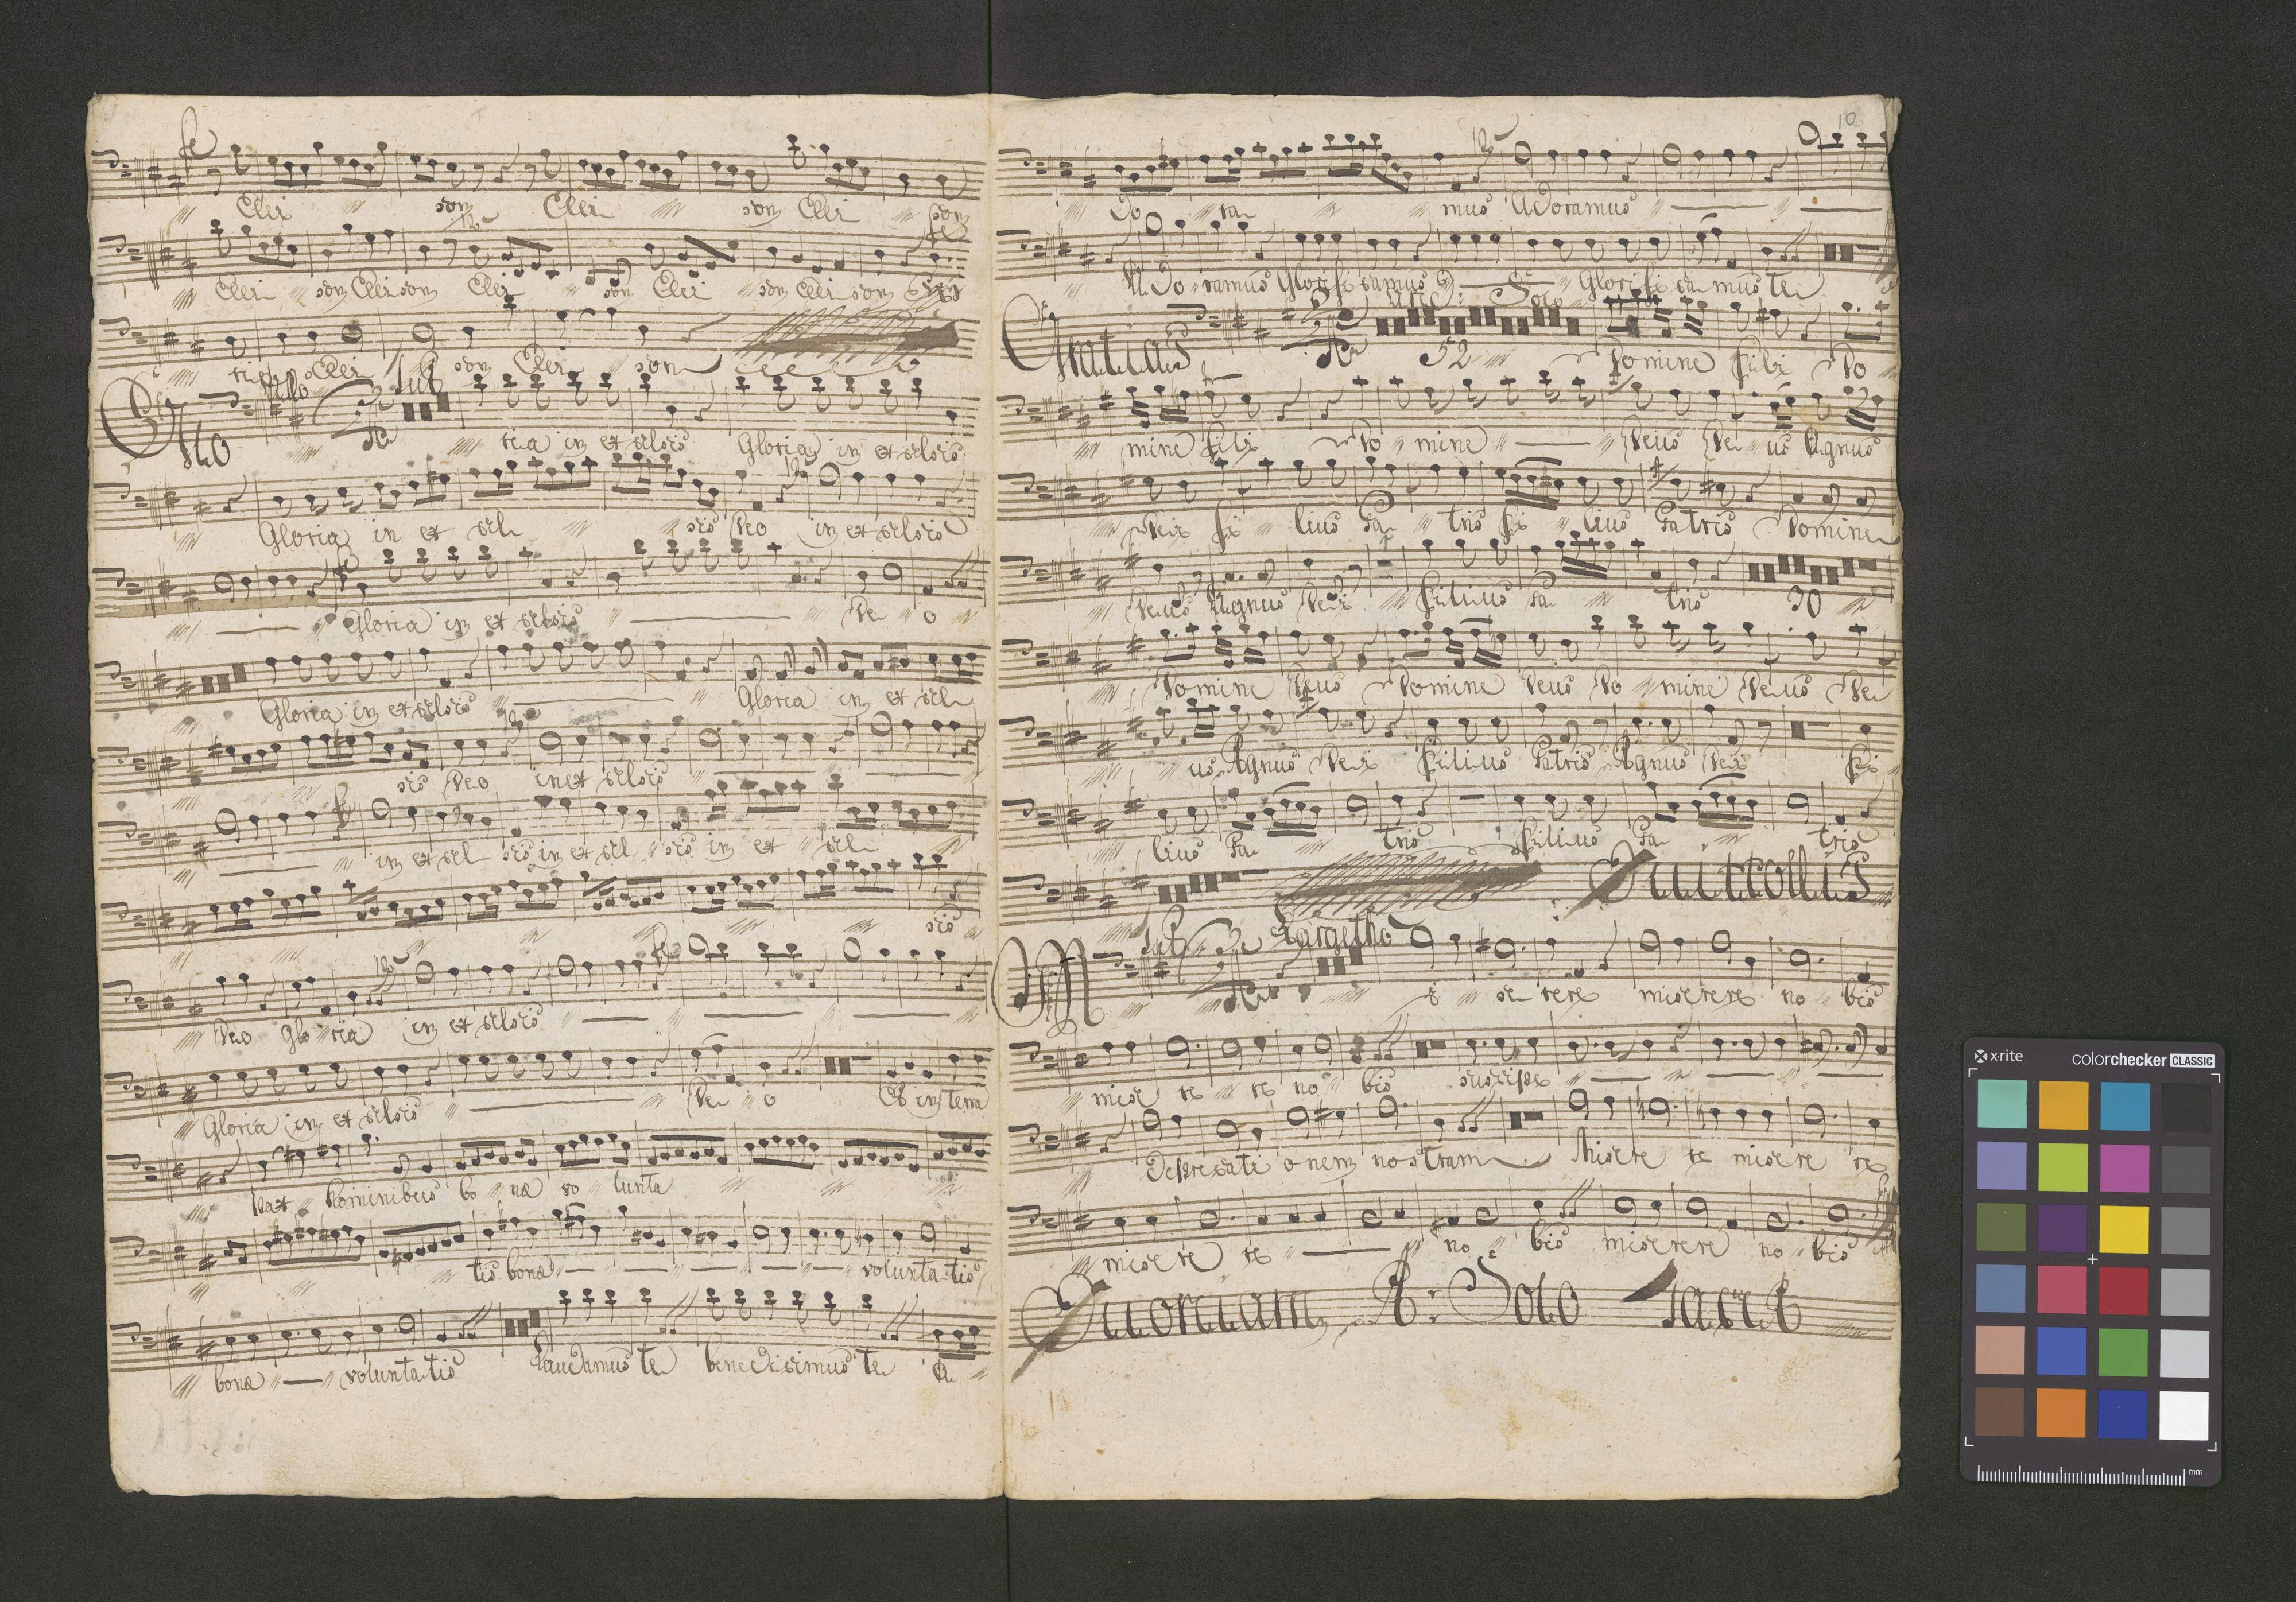 fe
Elei son Elei son Elei son
po fe
Elei son Elei son Elei son Elei son Elei son
Elei son Elei son
Glo Tut
ria in excelsis Gloria in excelsis
po
Gloria in excel sis Deo in excelsis
fe
Gloria in excelsis De o
Gloria in excelsis Gloria in excel
po
sis Deo in excelsis
fe
in excel sis in excel sis in excel
sis
po fe
Deo Gloria in excelsis
Gloria in excelsis De o Et in terra
pax hominibus bonæ volunta
tis bonæ voluntatis
bonæ voluntatis Laudamus te benedicimus te A
10
po
do ra mus Adoramus
Adoramus Glorificamus Glorificamus te
Gratias Solo
52 Domine Fili Do
mine Fili Domine Deus Deus Agnus
Dei Filius Patris Filius Patris Domine
Deus Agnus Dei Filius Pa tris 30
Domine Deus Domine Deus Domine Deus De
us Agnus Dei Filius Patris Agnus Dei Fi
lius Pa tris Filius Pa tris
Qui tollis
M Tut Largetho
i se rere miserere no bis
misere re no bis suscipe
deprecationem nostram Misere re misere re
misere re no bis miserere no bis
Quoniam A: Solo Tacet
x-rite colorchecker CLASSIC
mm